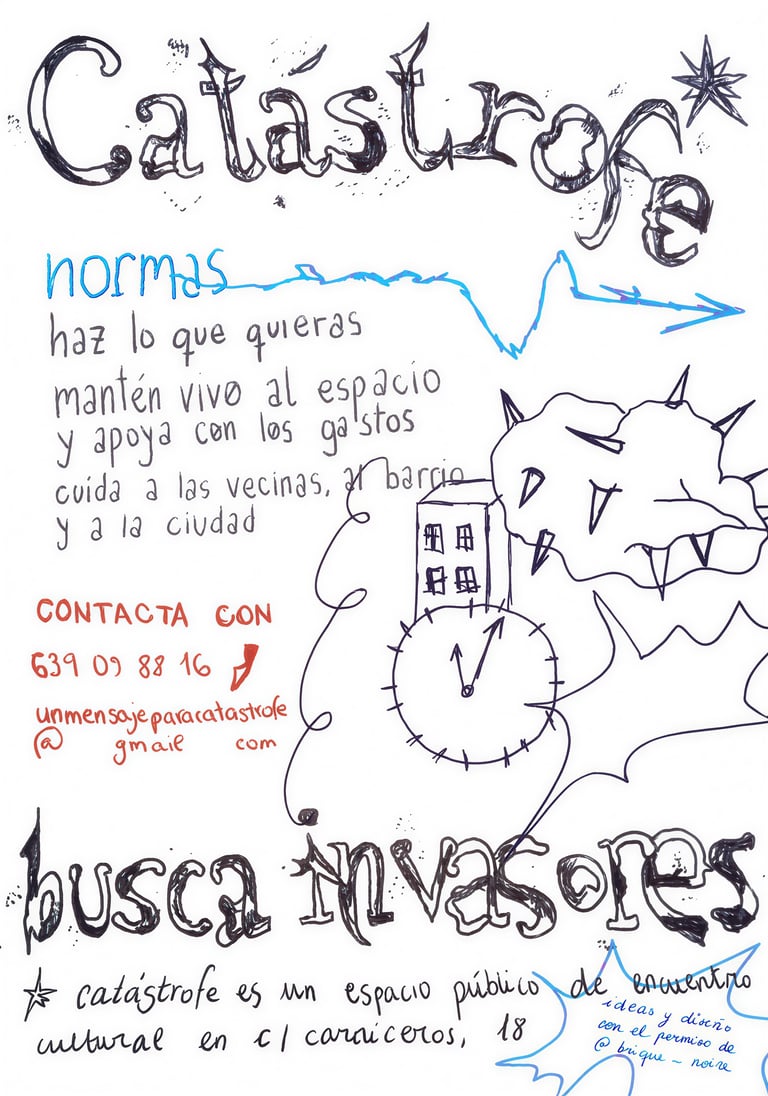 Catástrofe
normas
haz lo que quieras
mantén vivo al espacio
y apoya con los gastos
cuida a las vecinas, al barrio
y a la ciudad
CONTACTA CON
639 09 88 16
unmensajeparacatastrofe
@ gmail com
busca invasores
catástrofe es un espacio público de encuentro
cultural en c/ carniceros, 18
ideas y diseño
con el permiso de
@ brique_noire